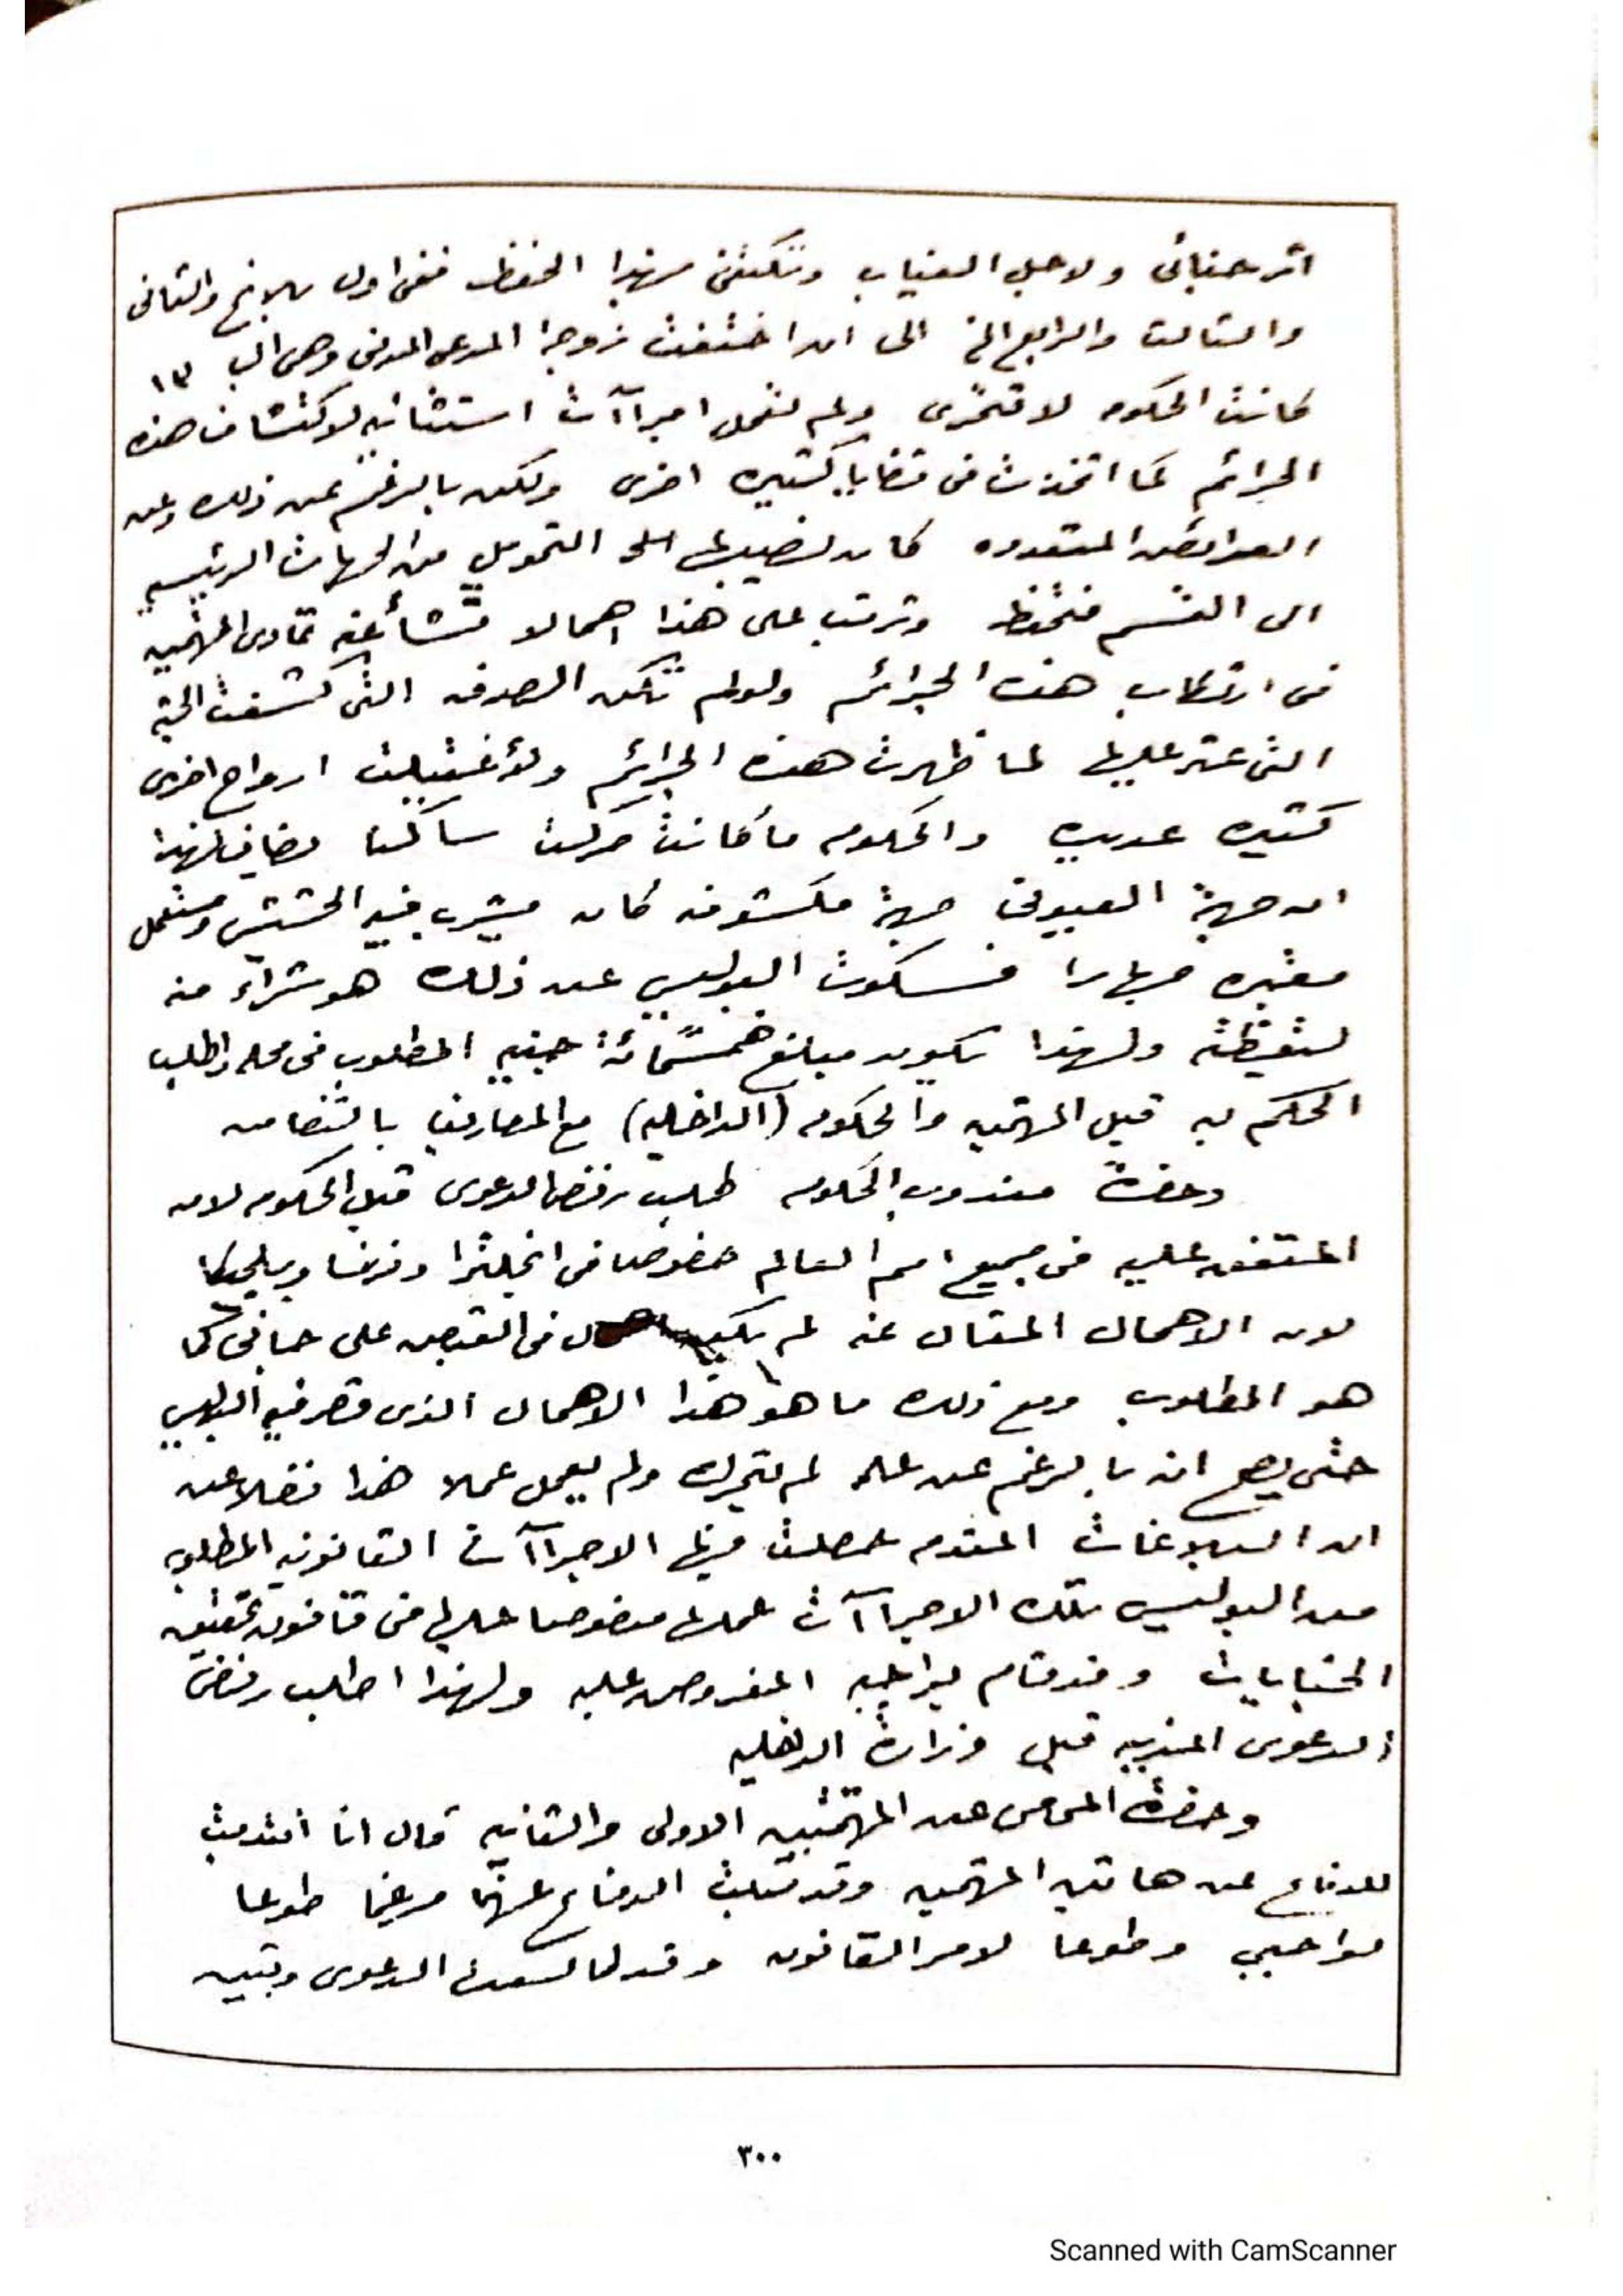 اثر جنائى ولاجل الغياب وتكتفى بهذا الحفظ ففى اول بلاغ والثانى
والثالث والرابع الخ الى ان اختفت زوجة المدعى المدنى وهى الـ ١٣
كانت الحكومه لا تتحرى ولم تعمل اجراآت استثنائيه لاكتشاف هذه
الجرائم كما اتخذت فى قضايا كثيره اخرى ولكن بالرغم عن ذلك وعن
العرائض المتعدده كان نصيبها التحويل من الجهات الرئيسيه
الى القسم فتحفظ وترتب على هذا اهمالا نشأ عنه تمادى المتهمين
فى ارتكاب هذه الجرائم ولو لم تكن الصدفه التى كشفت الجثه
التى عثر عليها لما ظهرت هذه الجرائم ولاغتيلت ارواح اخرى
كثيره عديده والحكومه ما كانت حركت ساكنا مضافا لهذا
ان جهة جهة مكشوفه كان يشرب فيه الحشيش ويستعمل
جهارا فسكوت البوليس عن ذلك هو شراء منه
ولهذا يكون مبلغ خمسمائة جنيه المطلوب فى محله واطلب
الحكم به قبل المتهمين والحكومه (الداخليه) مع المصاريف بالتضامن
وحضرة مندوب الحكومه طلب رفض الدعوى قبل الحكومه لان
المتفق عليه فى جميع امم العالم خصوصا فى انجلترا وفرنسا وبلجيكا
لان الاهمال المقال عنه لم يكن فى القبض على جانى كما
هو المطلوب ومع ذلك ما هو هذا الاهمال الذى قصر فيه البوليس
حتى يصح انه بالرغم عن علمه لم يتحرك ولم يعمل عملا هذا فضلا عن
ان البلاغات المتقدمه عملت فيها الاجراآت القانونيه المطلوبه
من البوليس تلك الاجراآت عملها منصوصا عليها فى قانون تحقيق
الجنايات وقد قام بواجبه المفروض عليه ولهذا اطلب رفض
الدعوى المدنيه قبل وزارة الداخليه
وحضرة المحامى عن المتهمتين الاولى والثانيه قال انا انتدبت
للدفاع عن هاتين المتهمتين وقد قبلت الدفاع عنهما مرغما طوعا
لواجبى وطوعا لامر القانون وقد الدعوى
٣٠٠
Scanned with CamScanner